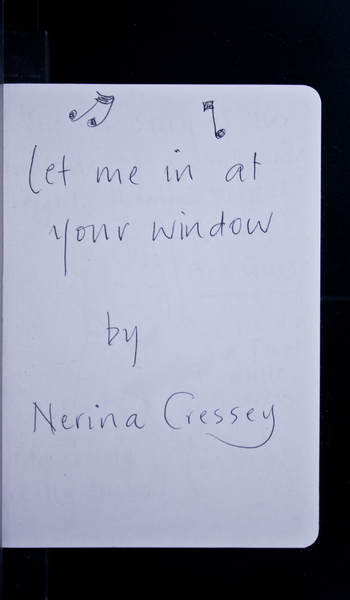 let me in at
your window
by
Nerina Cressey